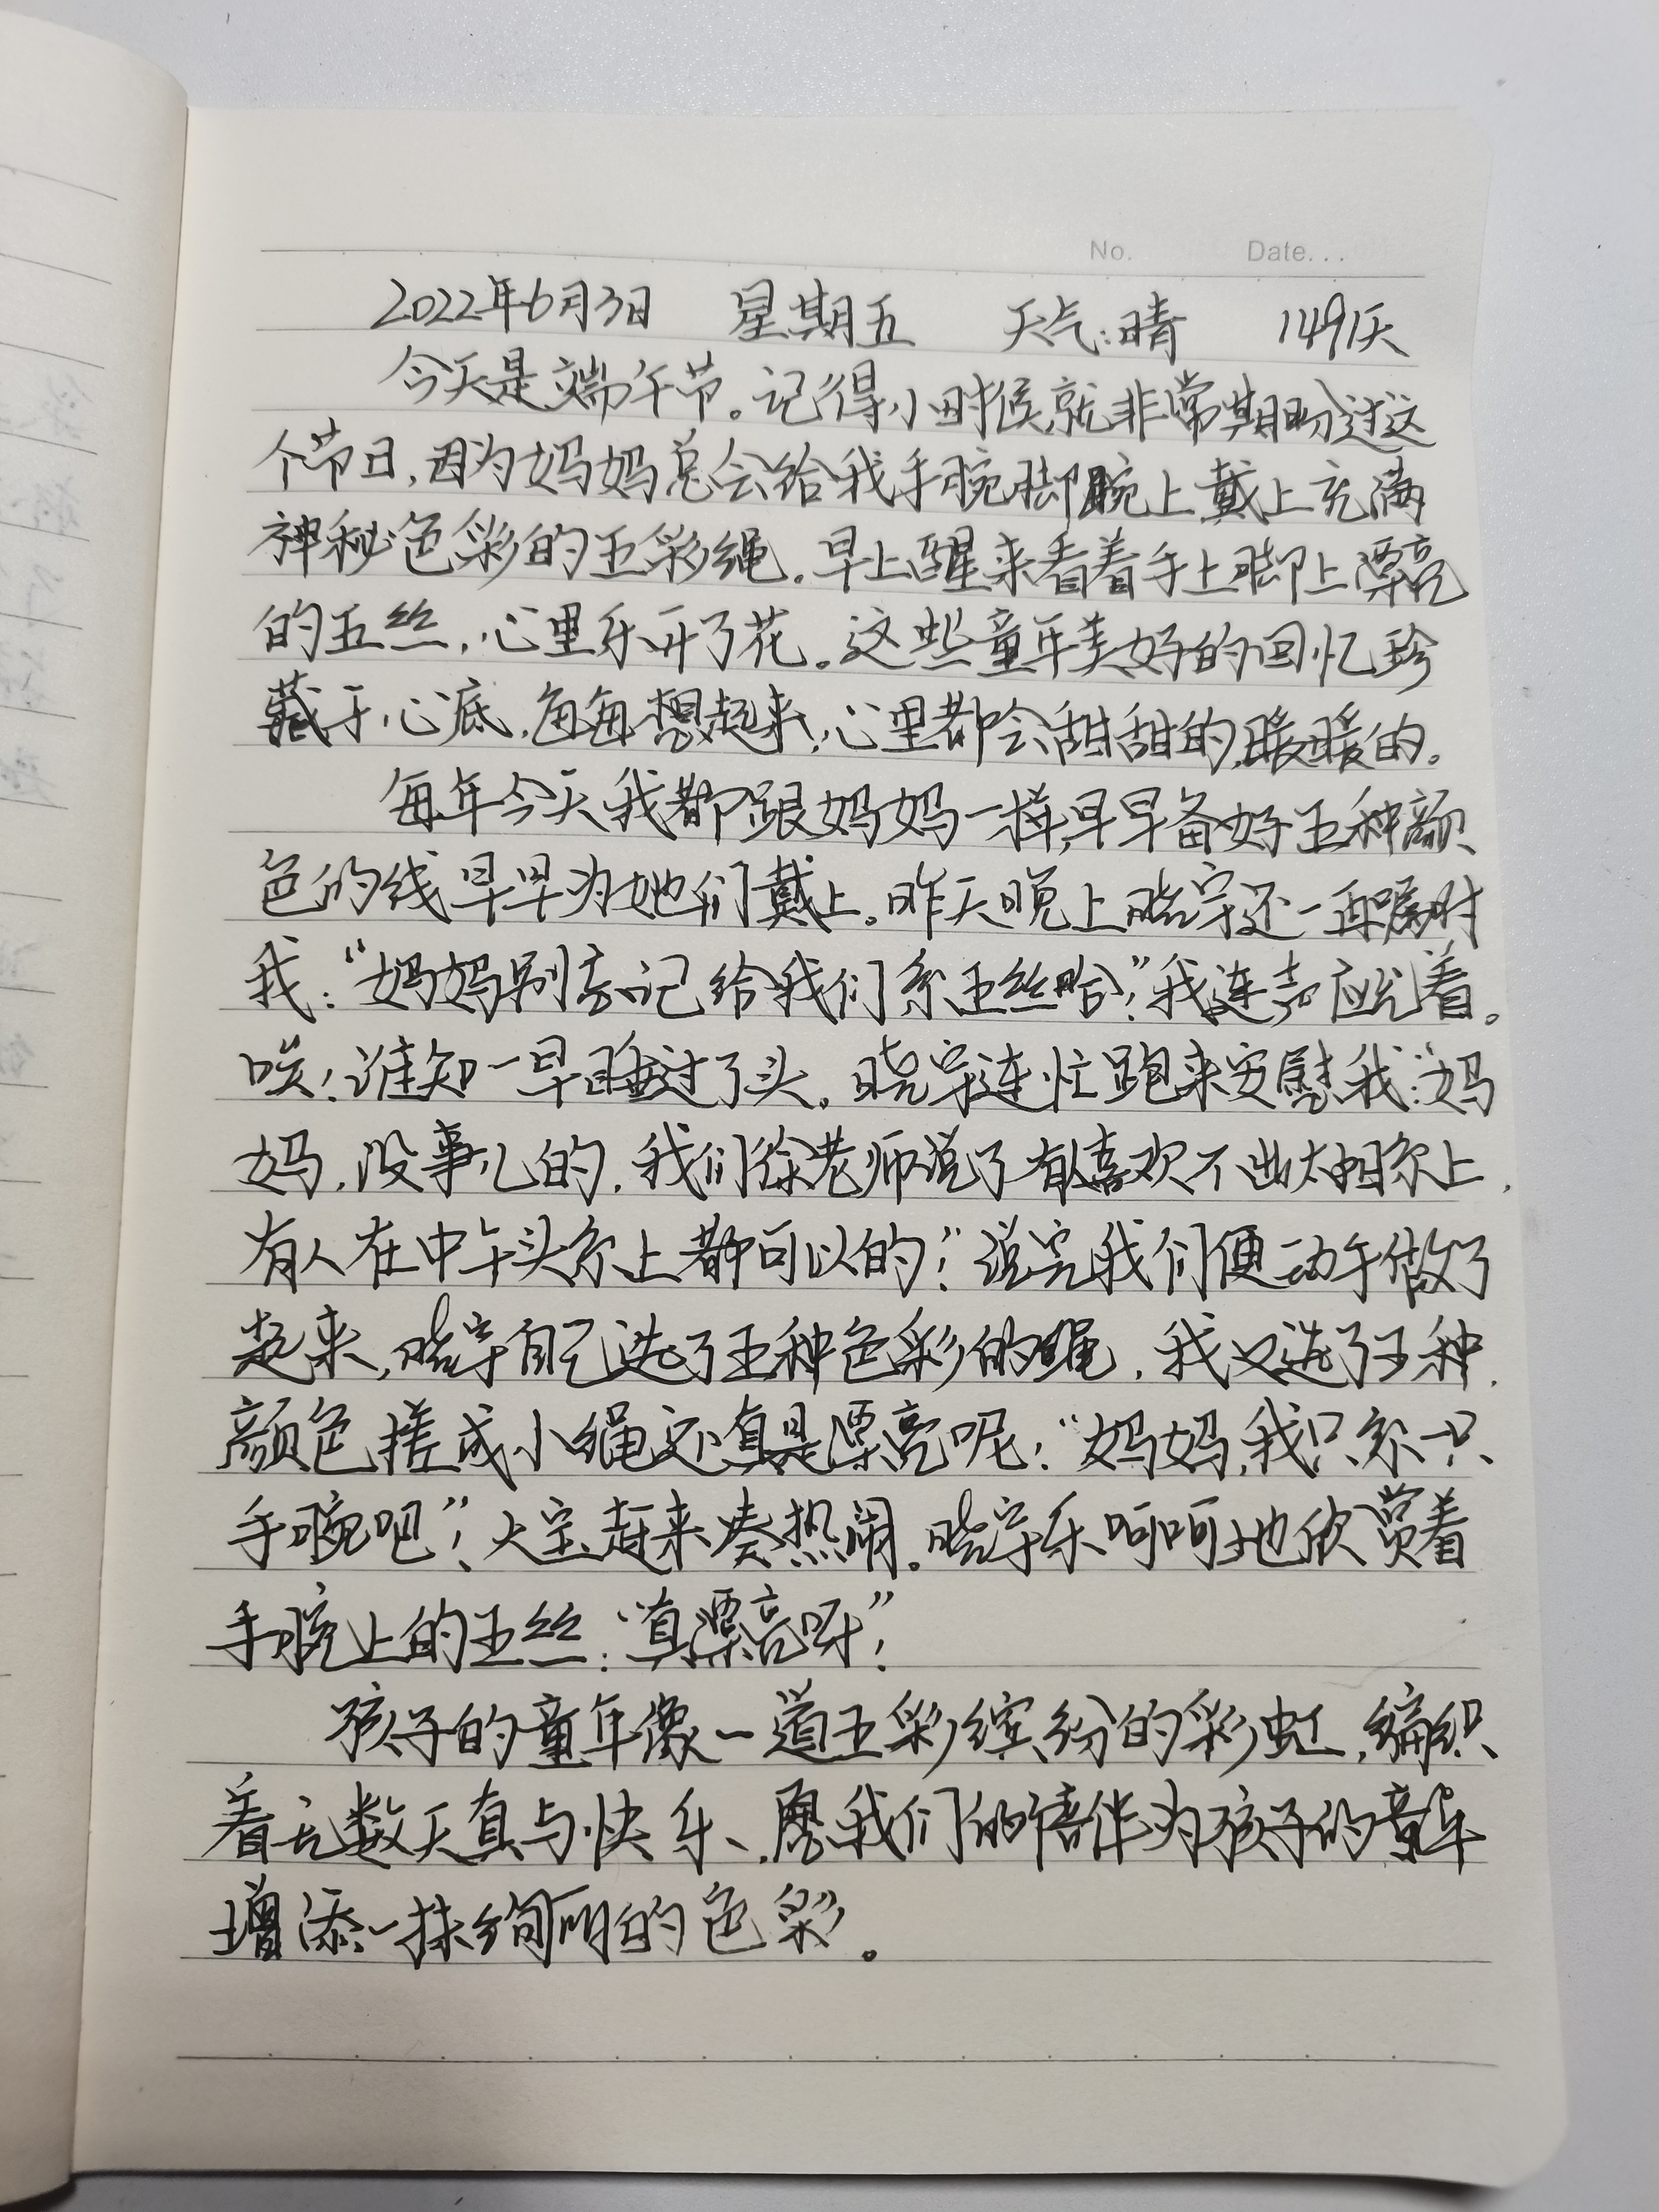 No. Date...
2022年6月3日 星期五 天气:晴 1491天
今天是端午节。记得小时候,就非常期盼过这
个节日,因为妈妈总会给我手腕脚腕上戴上充满
神秘色彩的五彩绳。早上醒来看着手上脚上漂亮
的五丝,心里乐开了花。这些童年美好的回忆珍
藏于心底,每每想起来,心里都会甜甜的,暖暖的。
每年今天我都跟妈妈一样,早早备好五种颜
色的线早早为她们戴上。昨天晚上晓宇还一再嘱咐
我:“妈妈别忘记给我们系五丝哈!”我连声应允着。
唉!谁知一早睡过了头。晓宇连忙跑来安慰我:“妈
妈,没事儿的,我们徐老师说了有人喜欢不出太阳系上,
有人在中午头系上都可以的!”说完我们便动手做了
起来,晓宇自己选了五种色彩的绳,我又选了五种
颜色搓成小绳还真是漂亮呢!“妈妈,我只系一只
手腕吧”!大宝赶来凑热闹。晓宇乐呵呵地欣赏着
手腕上的五丝:“真漂亮呀”!
孩子的童年像一道五彩缤纷的彩虹,编织
着无数天真与快乐、愿我们的陪伴为孩子的童年
增添一抹绚丽的色彩。